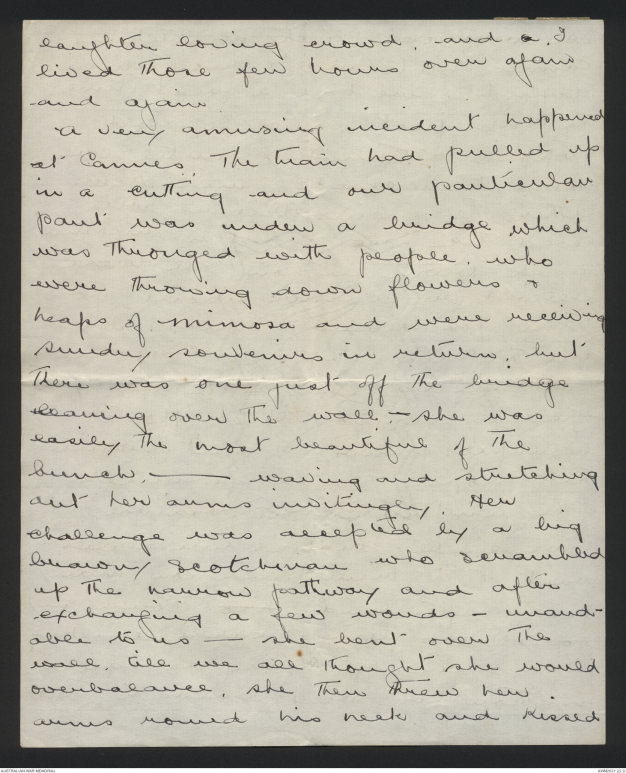 laughter loving crowd, and I
lived those few hours over again
and again.
A very amusing incident happened
at Cannes. The train had pulled up
in a cutting and our particular
part was under a bridge which
was thronged with people, who
were throwing down flowers &
heaps of mimosa and were receiving
sundry souvenirs in return, but
there was one just off the bridge
leaning over the wall - she was
easily the most beautiful of the
bunch, — waving and stretching
out her arms invitingly. Her
challenge was accepted by a big
brawny Scotchman who scrambled
up the narrow pathway and after
exchanging a few words - unaud-
able to us — she bent over the
wall, till we all thought she would
overbalance, she then threw her
arms round his neck and kissed
AUSTRALIAN WAR MEMORIAL